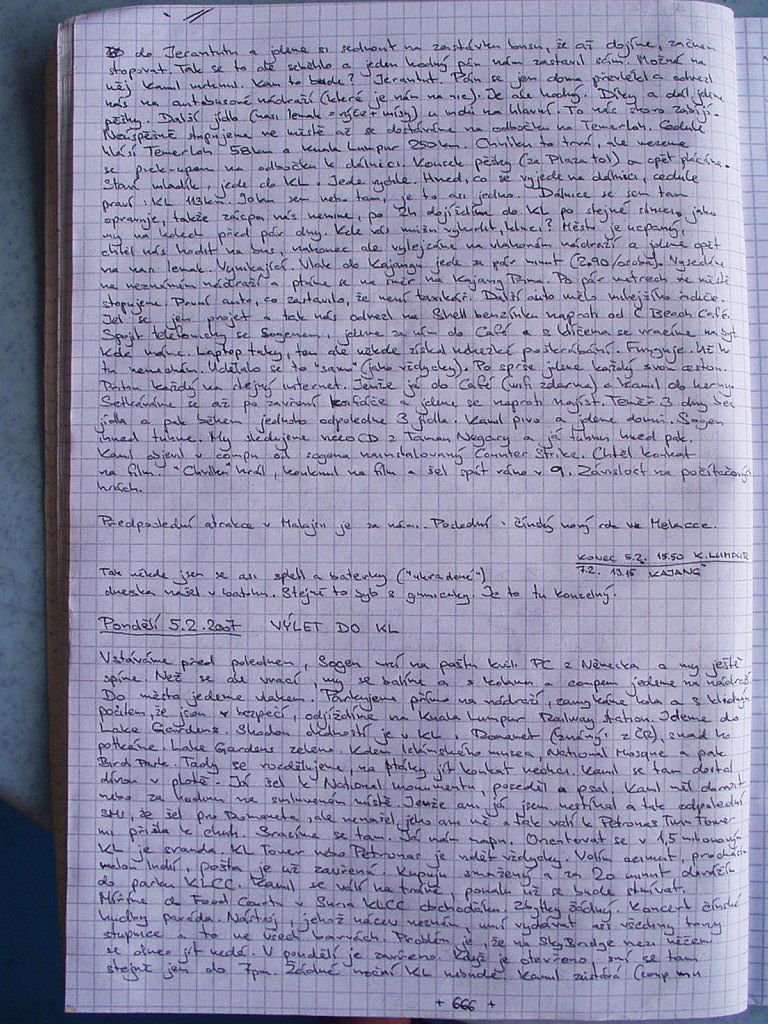 do Jerantutu a jdeme si sednout na zastávku busu, že až dojíme, začnem
stopovat. Tak se to ale seběhlo a jeden hodný pán nám zastavil sám. Možná na
něj Kamil mrknul. Kam to bude? Jerantut. Pán se jen doma převlékl a odvezl
nás na autobusové nádraží (které je nám na nic). Je ale hodný. Díky a dál jdeme
pěšky. Další jídlo (nasi lemak = rýže + mísy) u indů na hlavní. To nás skoro zabíjí.
Neúspěšně stopujeme ve městě až se dostáváme na odbočku na Temerloh. Cedule
hlásí Temerloh 58km a Kuala Lumpur 250km. Chvilku to trvá, ale vezeme
se pick-upem na odbočku k dálnici. Kousek pěšky (za Plaza tol) a opět
Staví mladík, jede do KL. Jede rychle. Hned, co se vyjede na dálnici, cedule
praví: KL 113km. Tolik sem nebo tam, je to asi jedno. Dálnice se sem tam
opravuje, takže zácpa nás nemine, po 2h dojíždíme do KL po stejné silnici, jako
my na kolech před pár dny. Kde vás můžu vyhodit, kluci? Město je ucpaný,
chtěl nás hodit na bus, nakonec ale vylejzáme na vlakovém nádraží a jdeme opět
na nasi lemak. Vynikající. Vlak do Kajangu jede za pár minut (2,90/osoba). Vysedáme
na neznámém nádraží a ptáme se na směr na Kajang Prima. Po pár metrech ve městě
stopujeme. První auto, co zastavilo, že není taxikář. Další auto mělo milejšího řidiče.
Jel se jen projet a tak nás odvezl na Shell benzínku naproti od Beach Café.
Spojit telefonicky se Sogenem, jdeme za ním do Café a s klíčema se vracíme na byt.
Kola máme. Laptop taky, ten ale někde získal nehezké poškrábání. Funguje. Už ho
tu nenechám. Udělalo se to "samo" (jako vždycky). Po sprše jdeme každý svou cestou.
Potom každý na stejný internet. Jenže já do Café (wifi zdarma) a Kamil do herny.
Setkáváme se až po zavření kafáče a jdeme se naproti najíst. Téměř 3 dny bez
jídla a pak během jednoho odpoledne 3 jídla. Kamil pivo a jdeme domů. Sogen
ihned tuhne. My sledujeme něco CD z Taman Negary a já tuhnu hned pak.
Kamil objevil v compu od sogena nainstalovaný Counter Strike. Chtěl koukat
na film. "Chvilku" hrál, kouknul na film a šel spát ráno v 9. Závislost na počítačových
hrách.
Předposlední atrakce v Malajsii je za námi. Poslední: čínský nový rok ve Melacce.
KONEC 5.2. 15.50 K.LUMPUR
7.2. 13.15 KAJANG
Tak někde jsem se asi spletl a baterky ("ukradené")
dneska našel v batohu. Stejně to bylo s gumicuky. Je to tu kouzelný.
Pondělí 5.2.2007 VÝLET DO KL
Vstáváme před polednem, Sogen mizí na poštu kvůli PC z Německa a my ještě
spíme. Než se ale vrací, my se balíme a s kolama a compem jedeme na nádraží.
Do města jedeme vlakem. Parkujeme přímo na nádraží, zamykáme kola a s klidným
pocitem, že jsou v bezpečí, odjíždíme na Kuala Lumpur Railway station. Jdeme do
Lake Gardens. Shodou okolností je v KL i Domanet (známý z ČR), snad ho
potkáme. Lake Gardens zeleno. Kolem Islámského muzea, National Mosque a pak
Bird Park. Tady se rozdělujeme, na ptáky jít koukat nechci. Kamil se tam dostal
dírou v plotě. Já šel k National monumentu, poseděl a psal. Kamil měl dorazit
nebo za hodinu na smluveném místě. Jenže ani já jsem nestíhal a tak odpolední
SMS, že šel pro Domaneta, ale nenašel, jeho ani mě a tak valí k Petronas Twin Tower
mi přišla k chuti. Ztrácíme se tam. Já nám mapu. Orientovat se v 1,5 milionovým
KL je sranda. KL Tower nebo Petronas je vidět vždycky. Volím azimut, procházím
malou Indií, pošta je už zavřená. Kupuju smažený a za 20 minut dorážím
do parku KLCC. Kamil se válí na trávě, pomalu už se bude stmívat.
Míříme do Food Courtu v Suria KLCC obchoďáku. Zbytky žádný. Koncert čínské
hudby paráda. Nástroj, jehož název neznám, umí vydávat asi všechny tóny
stupnice a to ve všech barvách. Problém je, že na SkyBridge mezi věžemi
se dnes jít nedá. V pondělí je zavřeno. Když je otevřeno, smí se tam
stejně jen do 7pm. Žádné noční KL nebude. Kamil zůstává (comp mu
+ 666 +